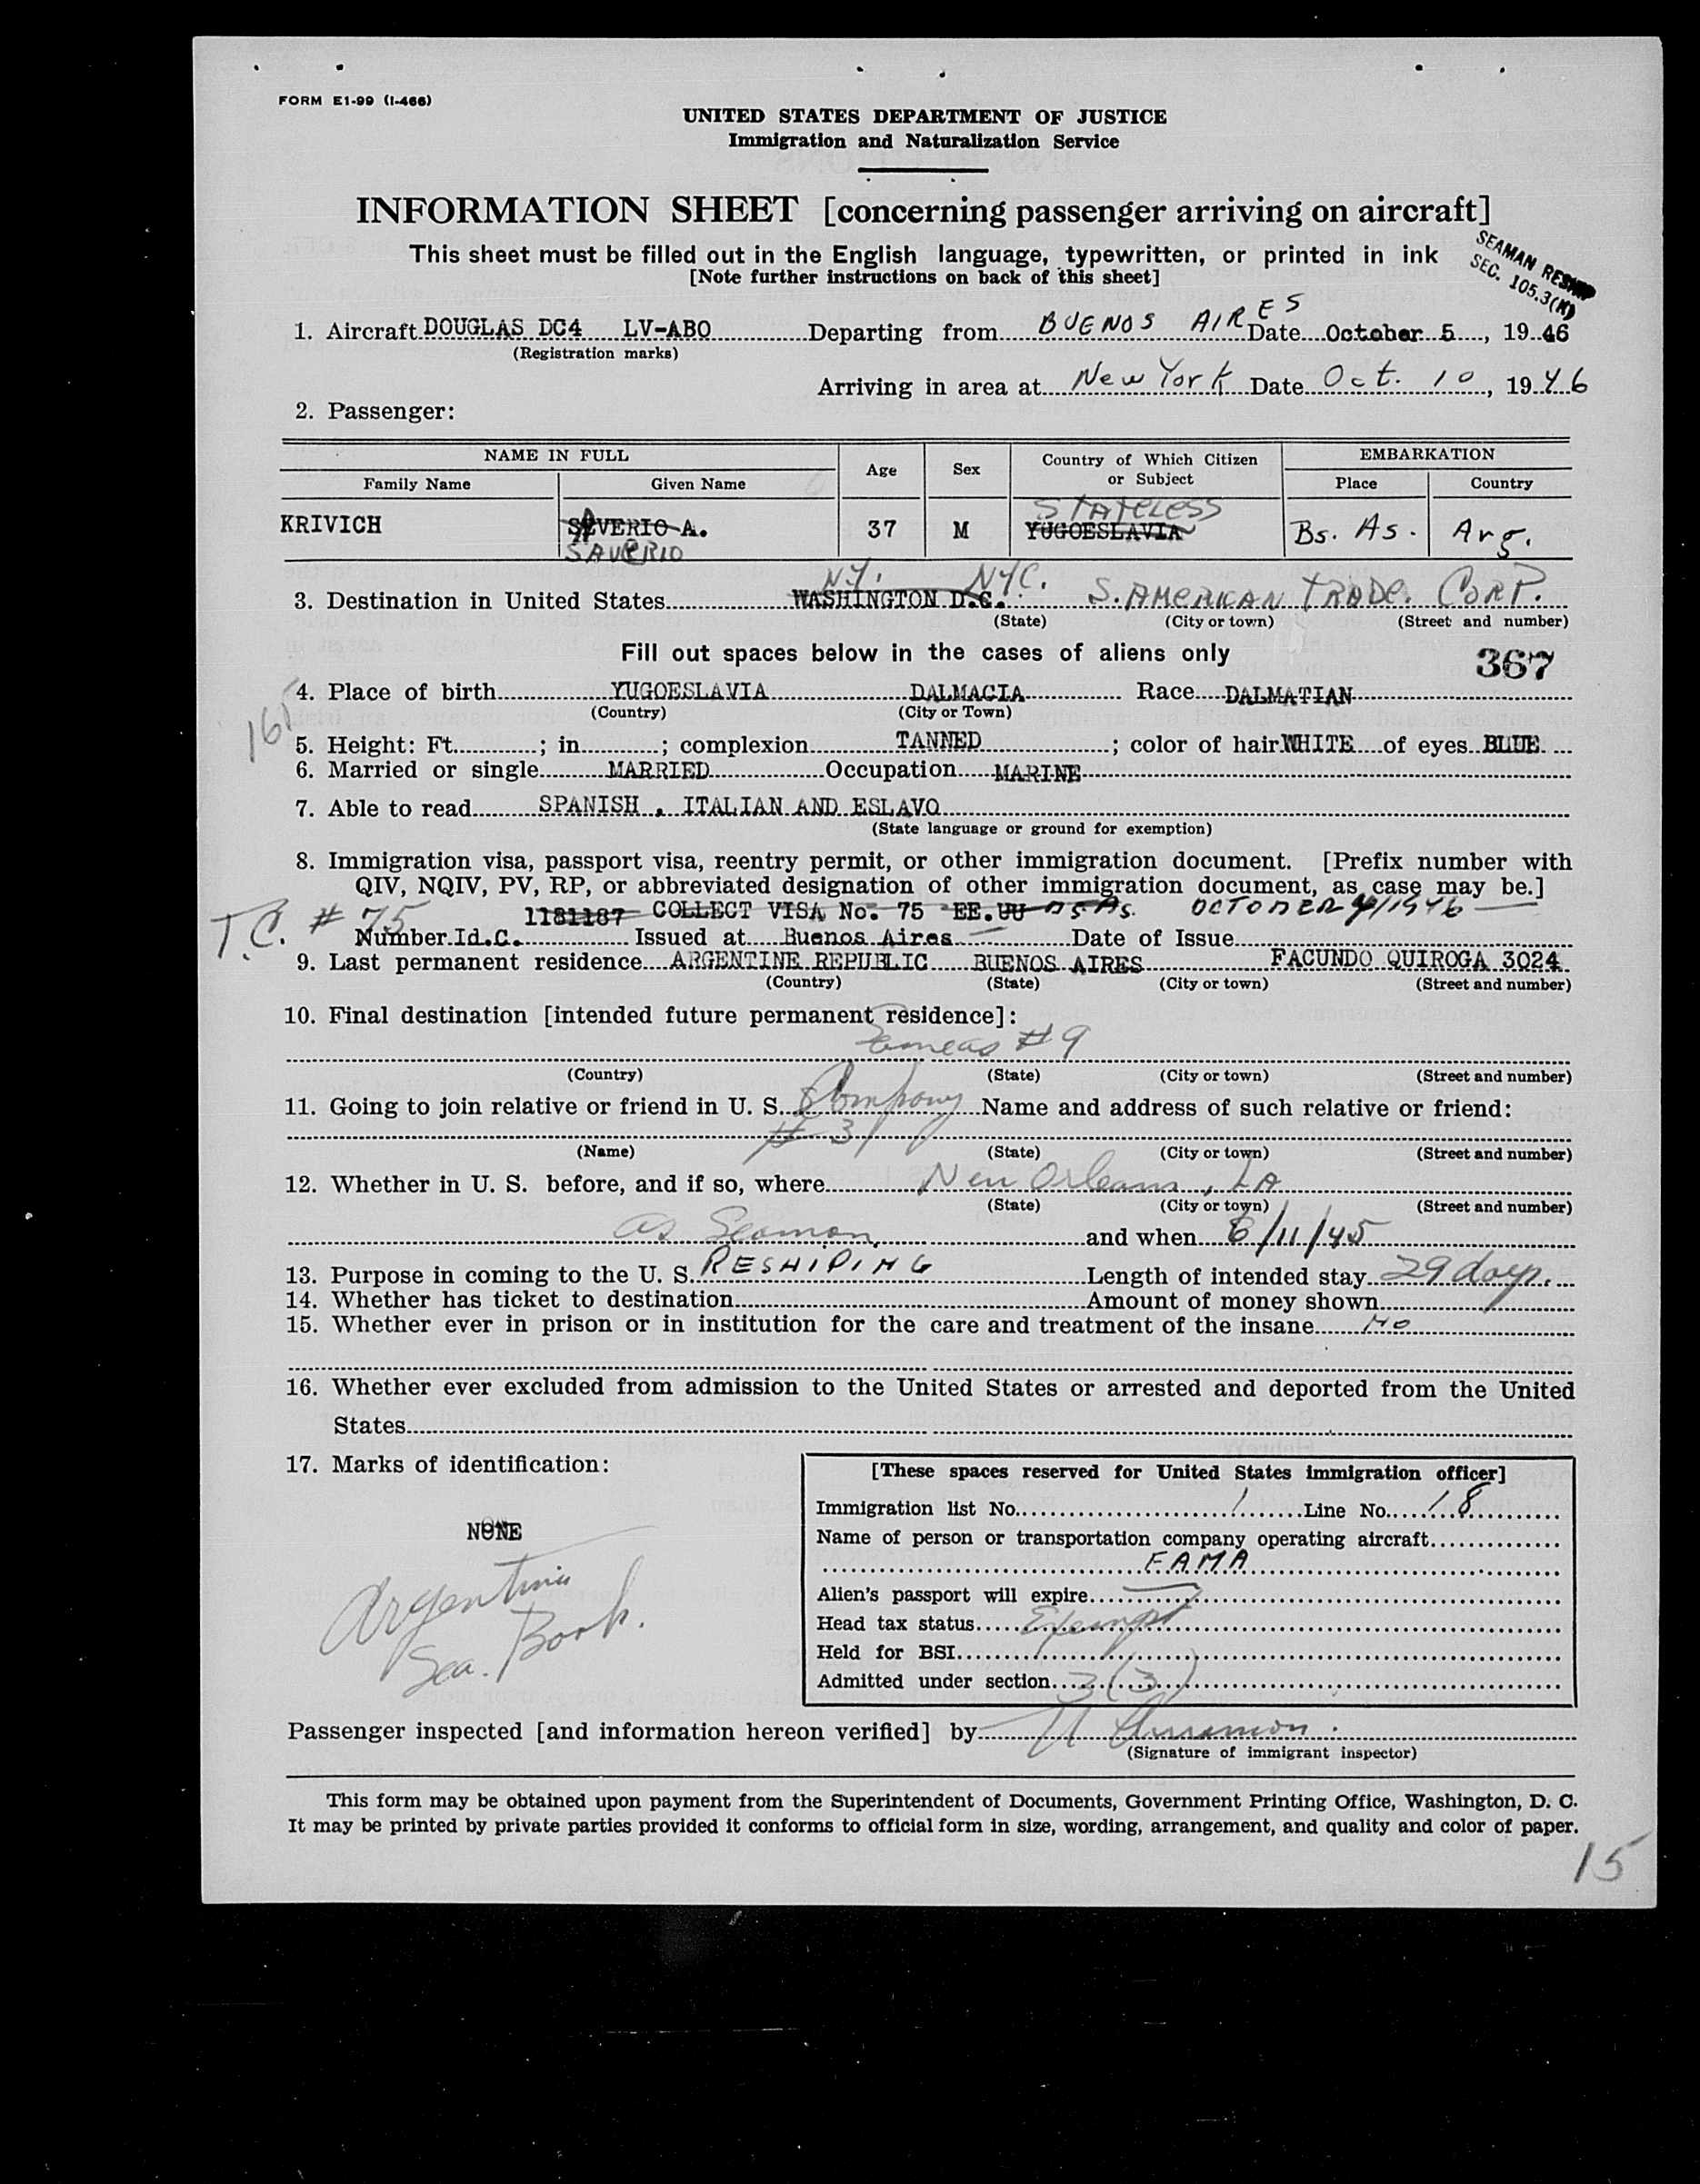 FORM E1-99 (I-466)
UNITED STATES DEPARTMENT OF JUSTICE
Immigration and Naturalization Service
INFORMATION SHEET [concerning passenger arriving on aircraft]
This sheet must be filled out in the English language, typewritten, or printed in ink
[Note further instructions on back of this sheet]
SEAMAN RESHIP
SEC. 105.3(K)
1. Aircraft DOUGLAS DC4 LV-ABO Departing from BUENOS AIRES Date October 5, 1946
(Registration marks)
Arriving in area at New York Date Oct. 10, 1946
2. Passenger:
NAME IN FULL Age Sex Country of Which Citizen or Subject EMBARKATION
Family Name Given Name Place Country
STATELESS
KRIVICH SEVERIO A. 37 M YUGOESLAVIA Bs. As. Arg.
SAVERIO
N.Y. NYC.
3. Destination in United States WASHINGTON D.C. S. AMERICAN TRADE. CORP.
(State) (City or town) (Street and number)
Fill out spaces below in the cases of aliens only 367
4. Place of birth YUGOESLAVIA DALMACIA Race DALMATIAN
(Country) (City or Town)
165
5. Height: Ft. ; in. ; complexion TANNED ; color of hair WHITE of eyes BLUE
6. Married or single MARRIED Occupation MARINE
7. Able to read SPANISH , ITALIAN AND ESLAVO
(State language or ground for exemption)
8. Immigration visa, passport visa, reentry permit, or other immigration document. [Prefix number with
QIV, NQIV, PV, RP, or abbreviated designation of other immigration document, as case may be.]
T.C. # 75 1181187 COLLECT VISA No. 75 EE.UU Bs As. OCTOBER 4/1946
Number Id.C. Issued at Buenos Aires Date of Issue
9. Last permanent residence ARGENTINE REPUBLIC BUENOS AIRES FACUNDO QUIROGA 3024
(Country) (State) (City or town) (Street and number)
10. Final destination [intended future permanent residence]:
# 9
(Country) (State) (City or town) (Street and number)
11. Going to join relative or friend in U. S. Company Name and address of such relative or friend:
# 31
(Name) (State) (City or town) (Street and number)
12. Whether in U. S. before, and if so, where New Orleans, LA
(State) (City or town) (Street and number)
as Seaman and when 6/11/45
13. Purpose in coming to the U. S. RESHIPING Length of intended stay 29 days.
14. Whether has ticket to destination Amount of money shown
15. Whether ever in prison or in institution for the care and treatment of the insane No
16. Whether ever excluded from admission to the United States or arrested and deported from the United
States
17. Marks of identification:
NONE
Argentina
Sea. Book.
[These spaces reserved for United States immigration officer]
Immigration list No. 1 Line No. 18
Name of person or transportation company operating aircraft
FAMA
Alien's passport will expire
Head tax status Exempt
Held for BSI
Admitted under section 3(3)
Passenger inspected [and information hereon verified] by
(Signature of immigrant inspector)
This form may be obtained upon payment from the Superintendent of Documents, Government Printing Office, Washington, D. C.
It may be printed by private parties provided it conforms to official form in size, wording, arrangement, and quality and color of paper.
15